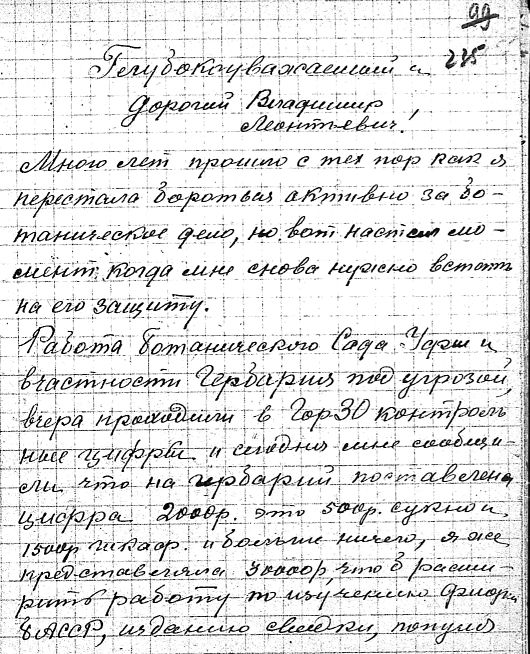 99
225
Глубокоуважаемый и
дорогой Владимир
Леонтьевич!
Много лет прошло с тех пор как я
перестала бороться активно за бо-
таническое дело, но вот настал мо-
мент когда мне снова нужно встать
на его защиту.
Работа Ботанического Сада Уфы и
вчастности Гербария под угрозой,
вчера проходили в ГорЗО контроль
ные цифры и сегодня мне сообщи-
ли что на гербарий поставлена
цифра 2000р. это 500р. сукно и
1500р шкаф. и больше ничего, я же
представляла 30000р, что б расши-
рить работу по изучению флоры
БАССР, изданию сводки,